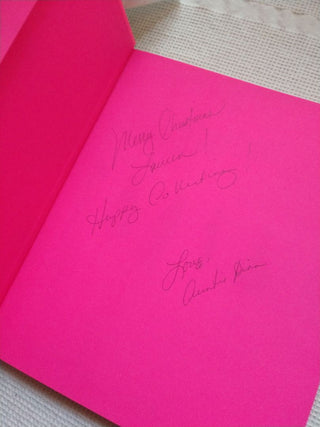 Merry Christmas
Lauren!
Happy Collecting!
Love,
Auntie